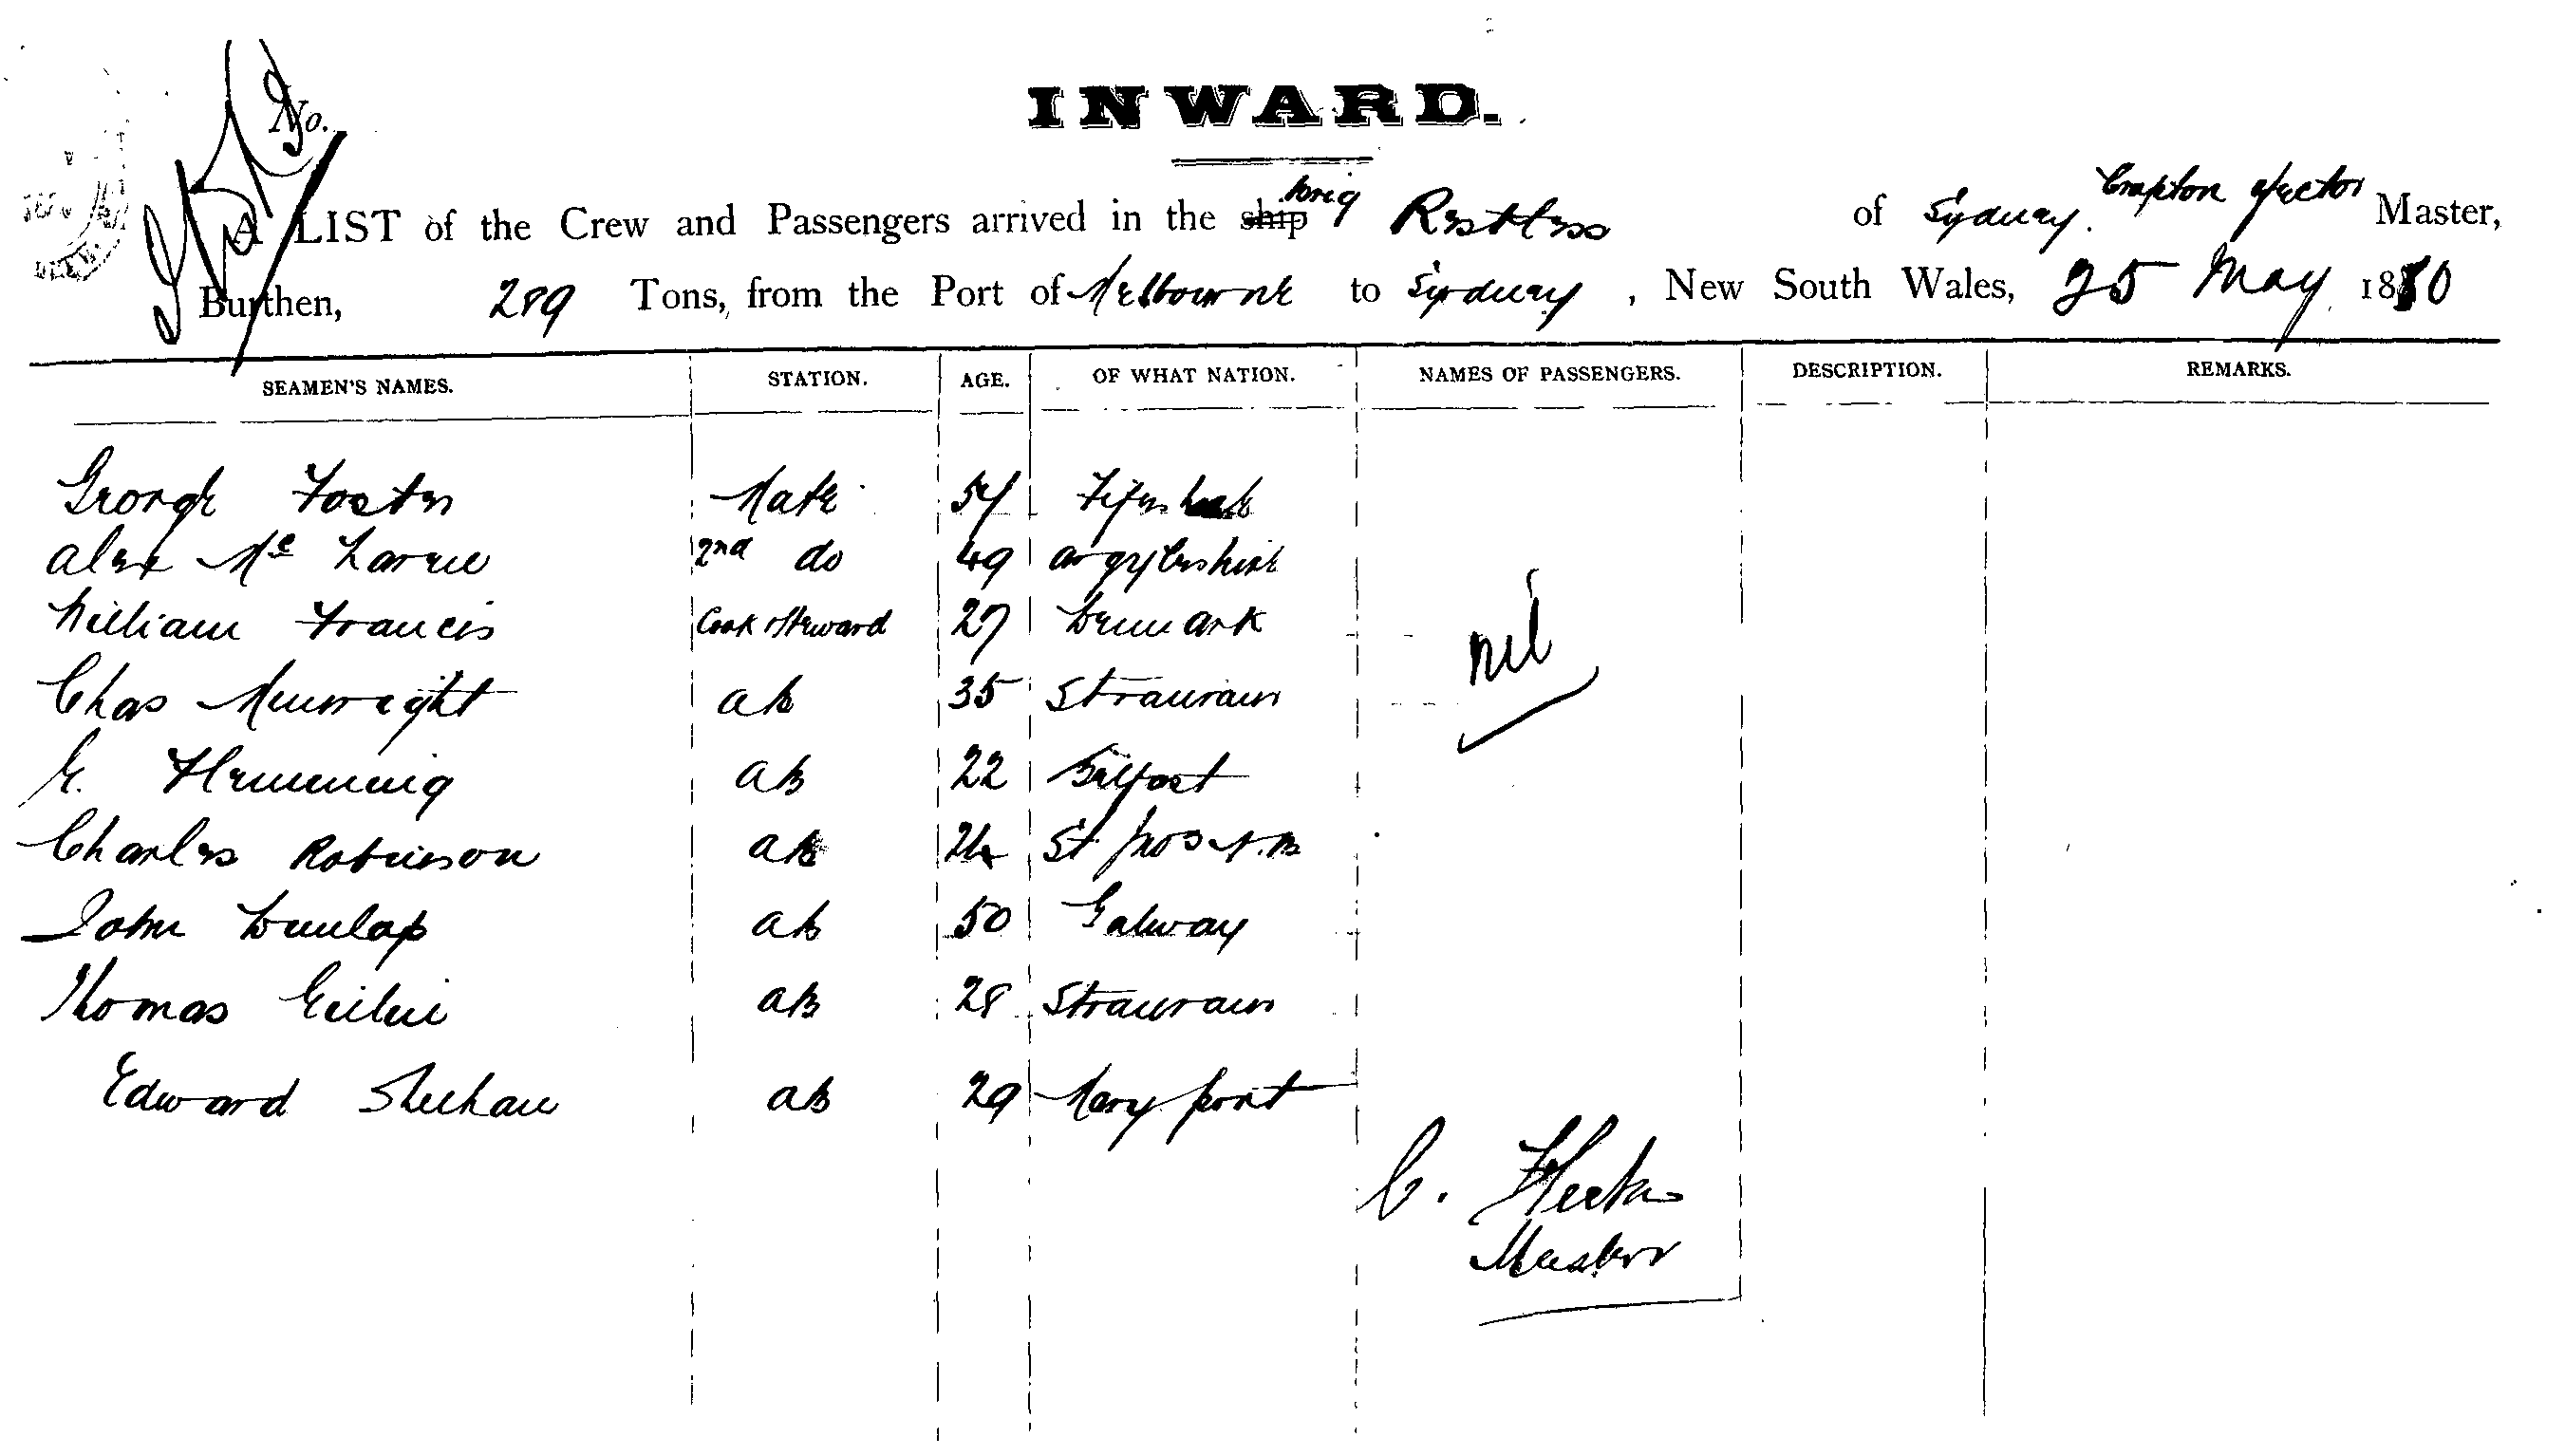 No.
INWARD.
A LIST of the Crew and Passengers arrived in the ship brig Restless of Sydney. Master,
Burthen, 289 Tons, from the Port of Melbourne to Sydney, New South Wales, 25 May 1880
SEAMEN'S NAMES. STATION. AGE. OF WHAT NATION. NAMES OF PASSENGERS. DESCRIPTION. REMARKS.
George Foster Mate
Alex Mc Laren 2nd do 49 Argyleshire
William Francis Cook & Steward 27 Denmark
Chas ab 35 Stranraer
E. Flemming ab 22 Belfast
nil
Charles Robinson ab 24 St Jnos N.B
John Dunlap ab 50 Galway
Thomas ab 28 Stranraer
Edward Sheehan ab 29 Mary port
C.
Master